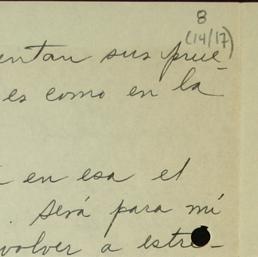 8
(14/17)
entan sus prue-
es como en la
en esa el
. Será para mí
volver a estre-